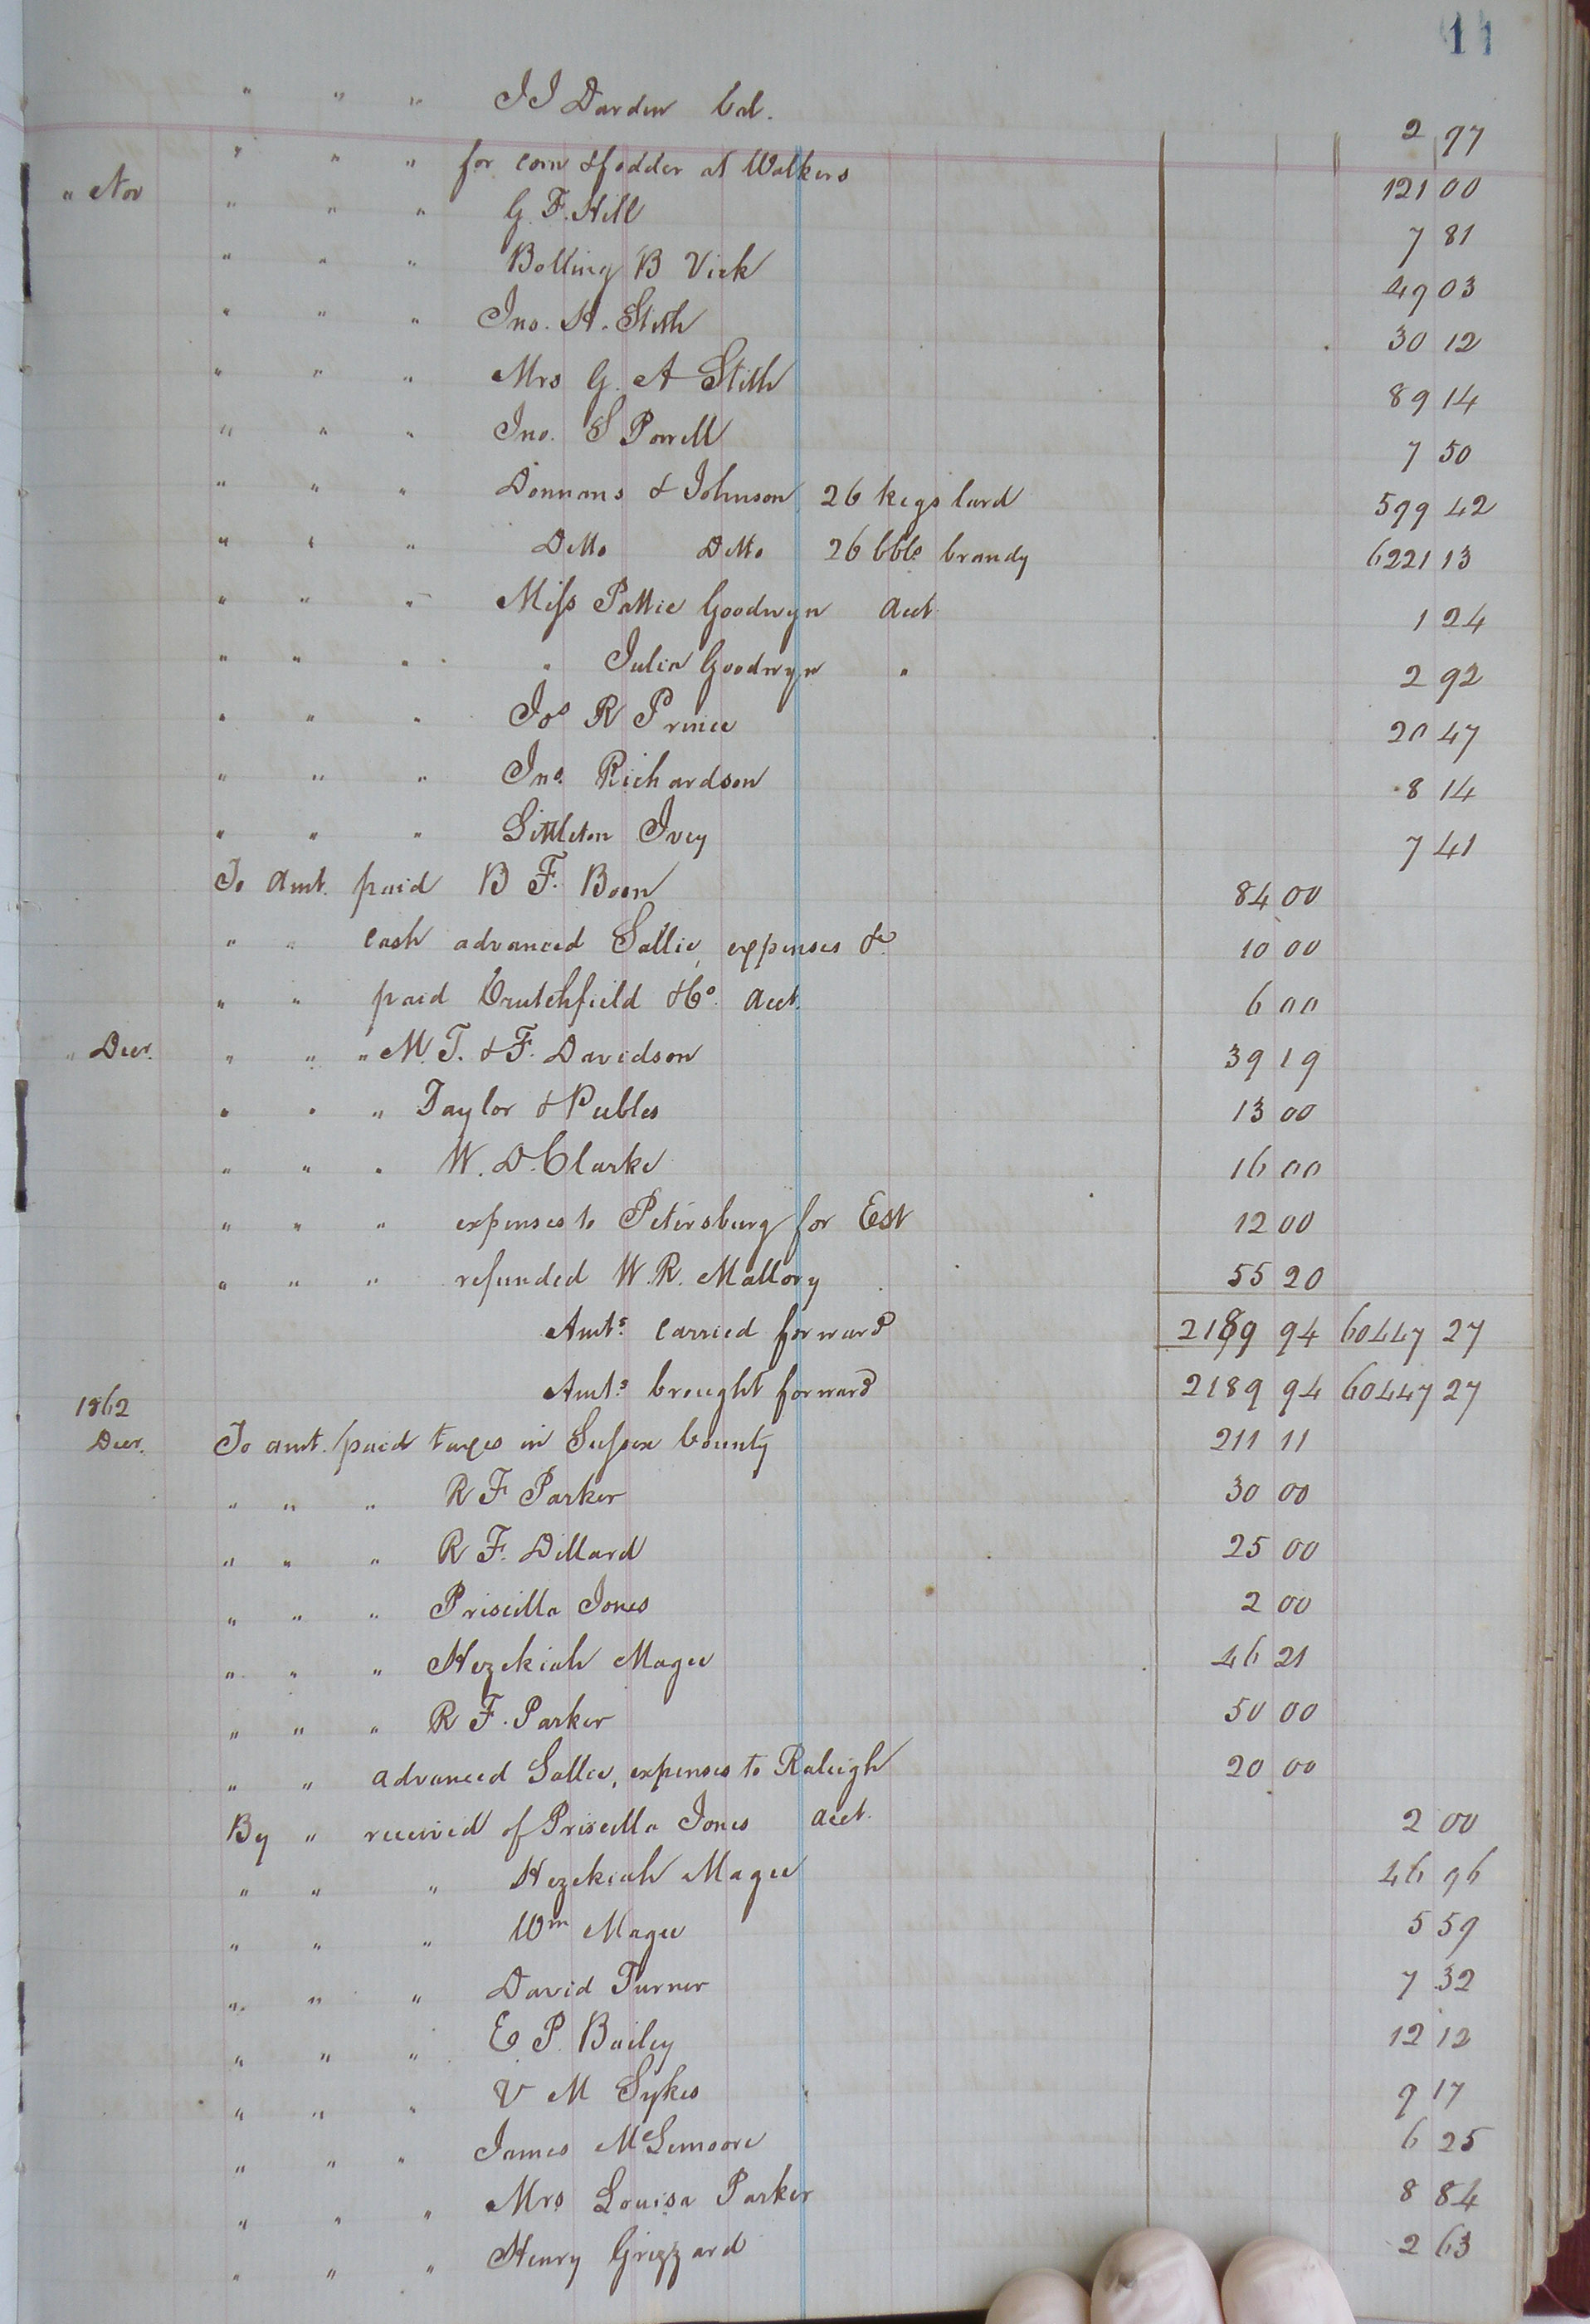 11
" " " J J Darden bal. 2 97
" " " for corn & fodder at Walkers 121 00
" Nov " " " G. F. Hill 7 81
" " " Bolling B Vick 49 03
" " " Jno. H. Stith 30 12
" " " Mrs G. A Stith 89 14
" " " Jno. S Powell 7 50
" " " Donnans & Johnson 26 kegs lard 599 42
" " " Ditto Ditto 26 bbls brandy 6221 13
" " " Miss Pattie Goodwyn acct 1 24
" " " " Julia Goodwyn " 2 92
" " " Jos R Prince 20 47
" " " Jno. Richardson 8 14
" " " Littleton Ivey 7 41
To Amt. paid B F. Boon 84 00
" " cash advanced Sallie, expenses &c 10 00
" " paid Crutchfield & Co. acct. 6 00
" Decr. " " " M. T. & F. Davidson 39 19
" " " Taylor & Peebles 13 00
" " " W. D. Clarke 16 00
" " " expenses to Petersburg for Est 12 00
" " " refunded W. R. Mallory 55 20
Amts. carried forward 2189 94 60447 27
Amts. brought forward 2189 94 60447 27
1862
Decr. To amt. paid taxes in Sussex County 211 11
" " " R F Parker 30 00
" " " R F. Dillard 25 00
" " " Priscilla Jones 2 00
" " " Hezekiah Magee 46 21
" " " R F. Parker 50 00
" " advanced Sallie, expenses to Raleigh 20 00
By " received of Priscilla Jones acct. 2 00
" " " Hezekiah Magee 46 96
" " " Wm Magee 5 59
" " " David Turner 7 32
" " " E P. Bailey 12 12
" " " V M Sykes 9 17
" " " James McLemore 6 25
" " " Mrs Louisa Parker 8 84
" " " Henry Grizzard 2 63